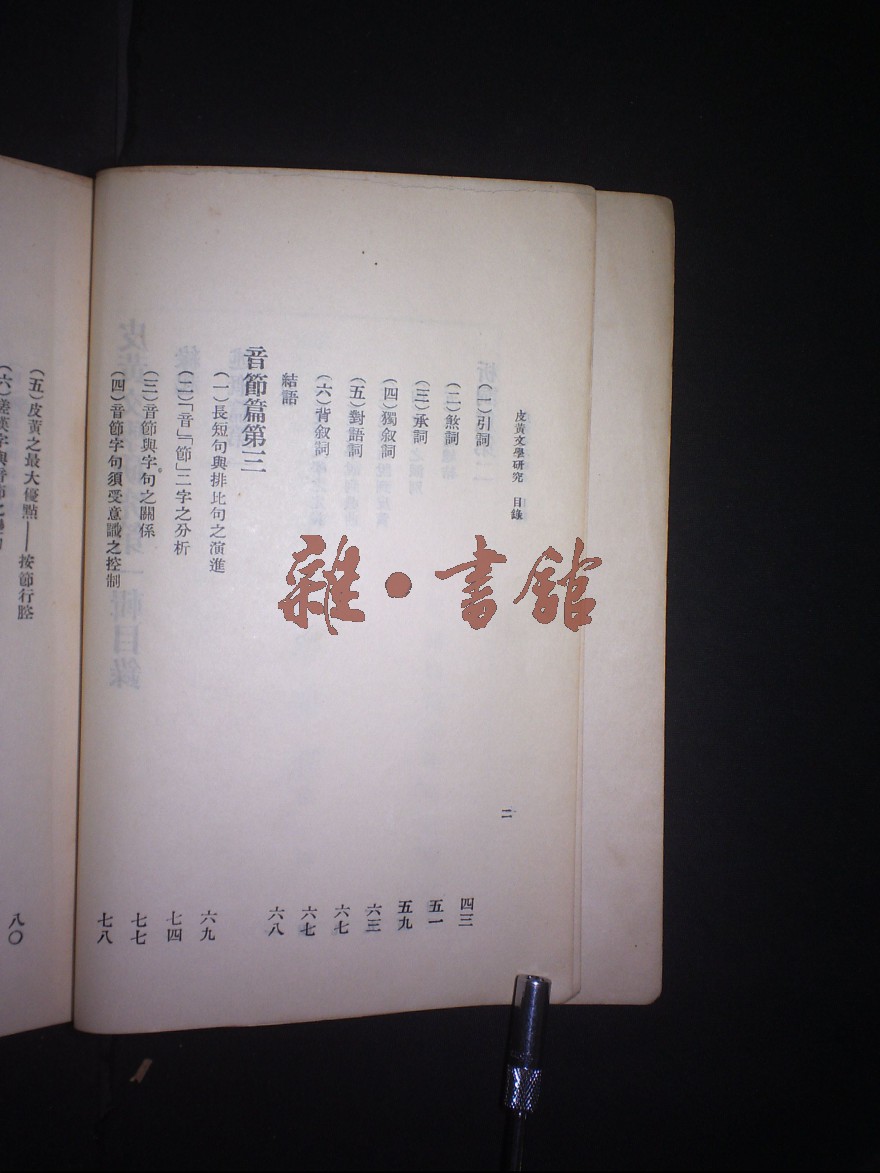 皮黃文學研究 目錄
二
(一)引詞 四三
(二)煞詞 五一
(三)承詞 五九
(四)獨敘詞 六三
(五)對語詞 六七
(六)背敘詞 六七
結語 六八
音節篇第三
(一)長短句與排比句之演進 六九
(二)「音」「節」二字之分析 七四
(三)音節與字句之關係 七七
(四)音節字句須受意識之控制 七八
(五)皮黃之最大優點——按節行腔 八〇
雜·書館